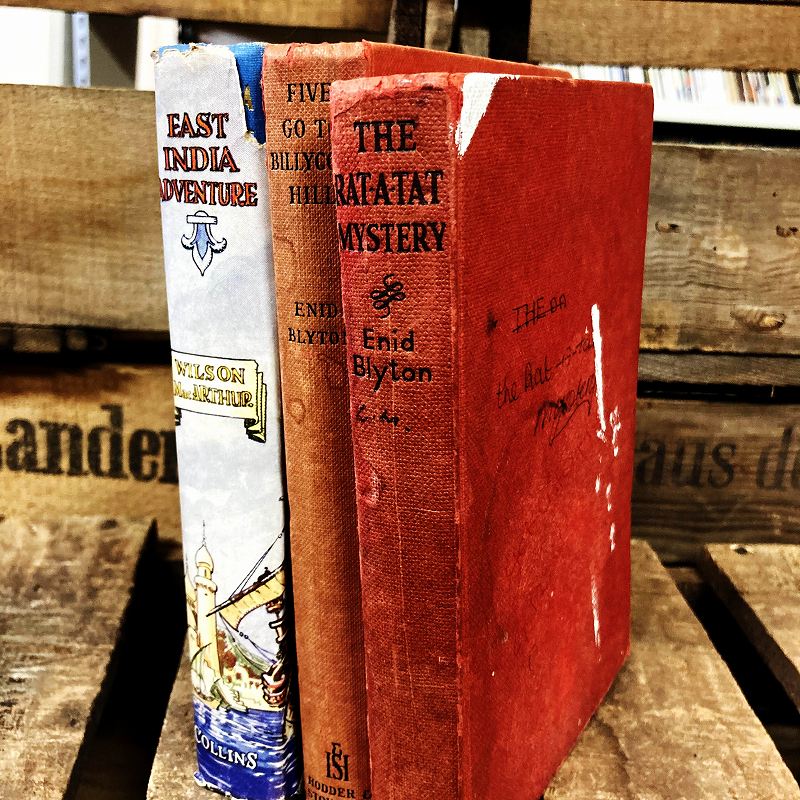 EAST
INDIA
ADVENTURE
WILSON
MacARTHUR
COLLINS
FIVE
GO T
BILLYCO
HILL
ENID
BLYTON
HODDER &
THE
RAT-A-TAT
MYSTERY
Enid
Blyton
THE
the Rat
lander
aus